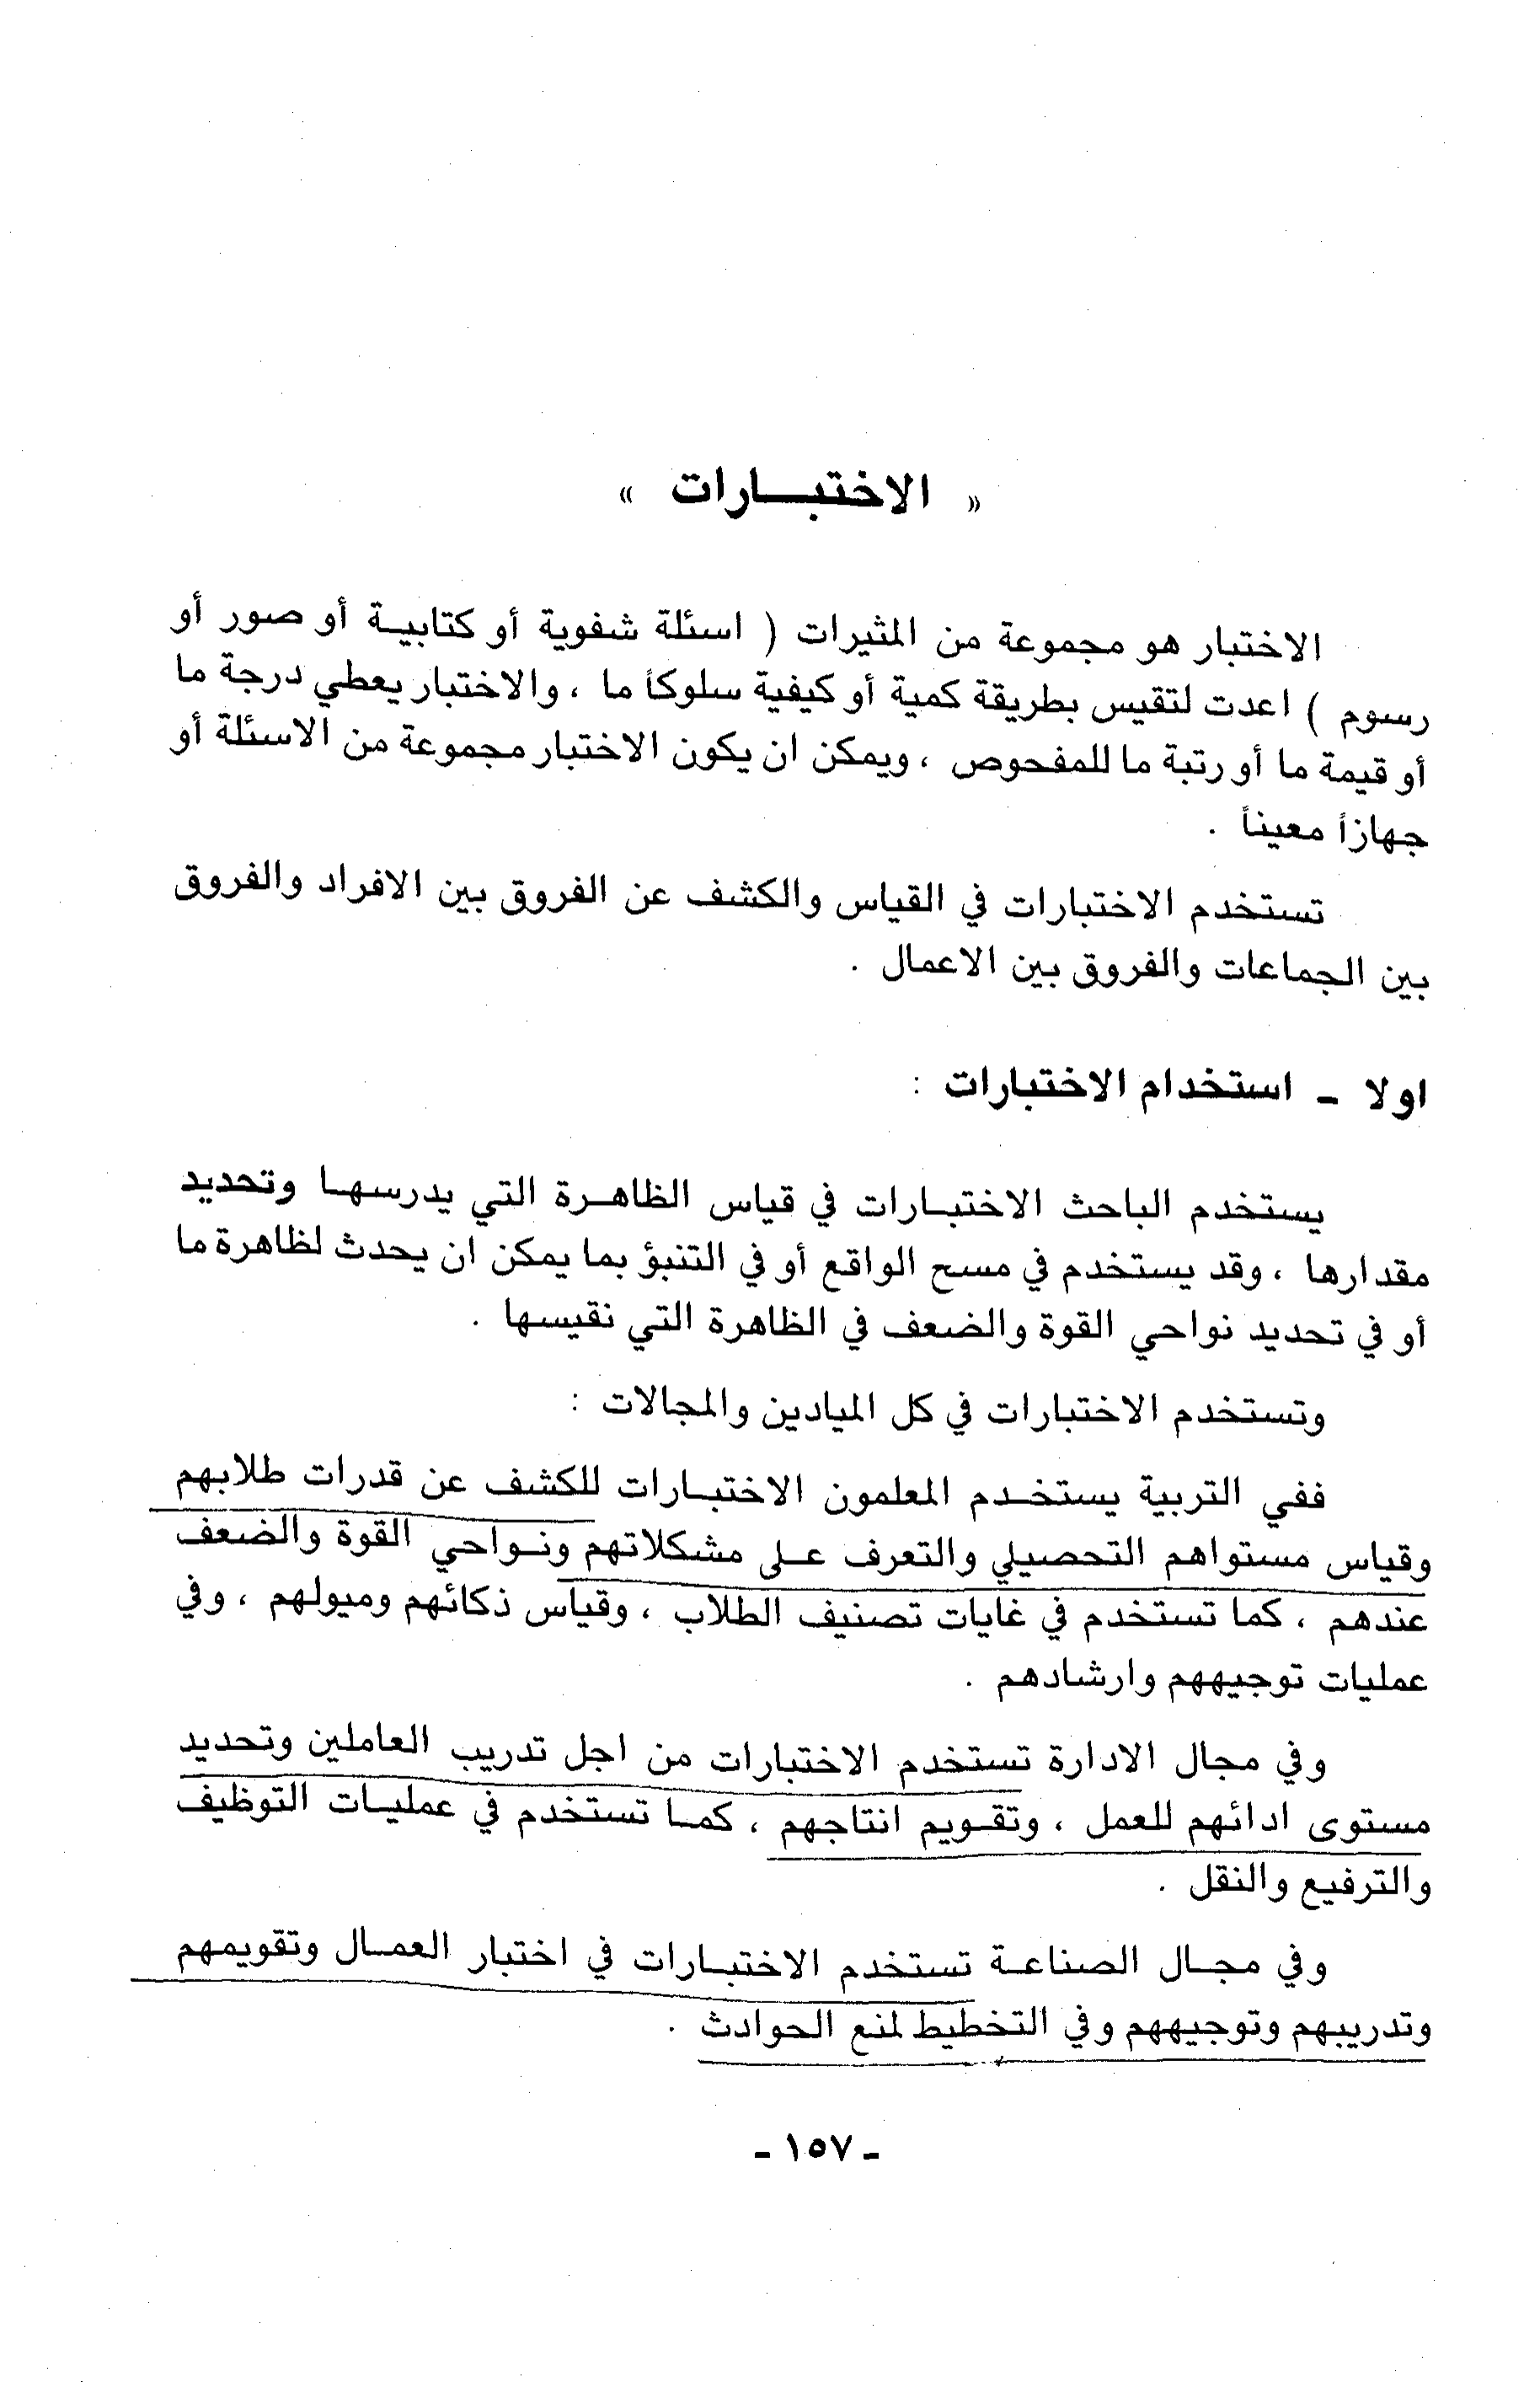 « الاختبـــارات »
الاختبار هو مجموعة من المثيرات ( اسئلة شفوية أو كتابيـة أو صور أو
رسوم ) اعدت لتقيس بطريقة كمية أو كيفية سلوكاً ما ، والاختبار يعطي درجة ما
أو قيمة ما أو رتبة ما للمفحوص ، ويمكن ان يكون الاختبار مجموعة من الاسئلة أو
جهازاً معيناً .
تستخدم الاختبارات في القياس والكشف عن الفروق بين الافراد والفروق
بين الجماعات والفروق بين الاعمال .
اولا - استخدام الاختبارات :
يستخدم الباحث الاختبـارات في قياس الظاهـرة التي يدرسهـا وتحديد
مقدارها ، وقد يستخدم في مسح الواقع أو في التنبؤ بما يمكن ان يحدث لظاهرة ما
أو في تحديد نواحي القوة والضعف في الظاهرة التي نقيسها .
وتستخدم الاختبارات في كل الميادين والمجالات :
ففي التربية يستخـدم المعلمون الاختبـارات للكشف عن قدرات طلابهم
وقياس مستواهم التحصيلي والتعرف عـلى مشكلاتهم ونـواحي القوة والضعف
عندهم ، كما تستخدم في غايات تصنيف الطلاب ، وقياس ذكائهم وميولهم ، وفي
عمليات توجيههم وارشادهم .
وفي مجال الادارة تستخدم الاختبارات من اجل تدريب العاملين وتحديد
مستوى ادائهم للعمل ، وتقـويم انتاجهم ، كمـا تستخدم في عمليـات التوظيف
والترفيع والنقل .
وفي مجـال الصناعـة تستخدم الاختبـارات في اختبار العمـال وتقويمهم
وتدريبهم وتوجيههم وفي التخطيط لمنع الحوادث .
- ١٥٧ -